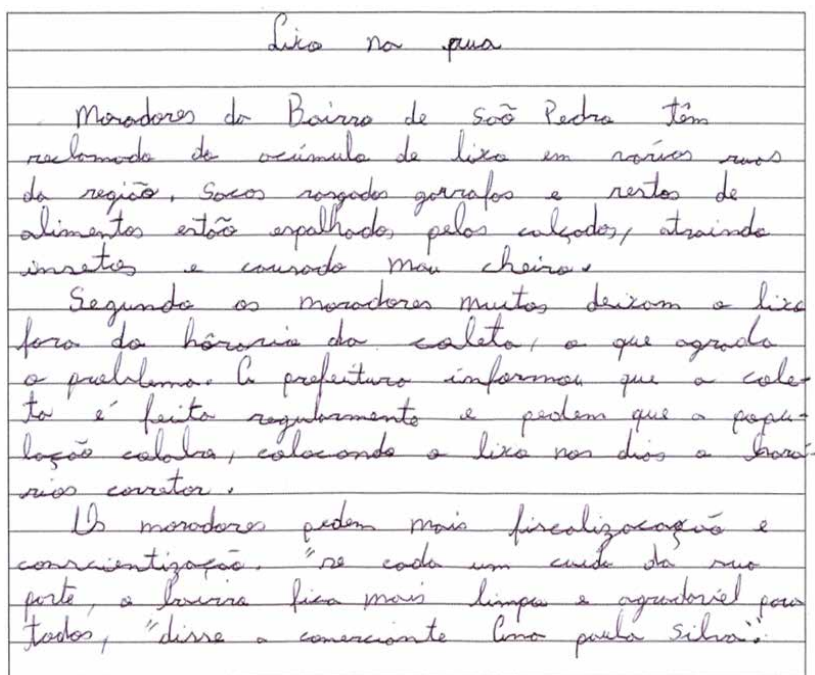 Lixo na rua
Moradores do Bairro de Saõ Pedro têm
reclamado do acúmulo de lixo em várias ruas
da região. Sacos rasgados garrafas e restos de
alimentos estão espalhados pelas calçadas, atraindo
insetos e causado mau cheiro.
Segundo os moradores muitos deixam o lixo
fora do hôrario da coleta, o que agrada
o problema. A prefeitura informou que a cole-
ta é feita regularmente e pedem que a popu-
lação colabra, colocando o lixo nos dias e horá-
rios corretor.
Os moradores pedem mais fiscalizacação e
conscientização. "se cada um cuida da sua
parte, o bairro fica mais limpo e agradavíel para
todos, "disse a comerciante Ana paula Silva".